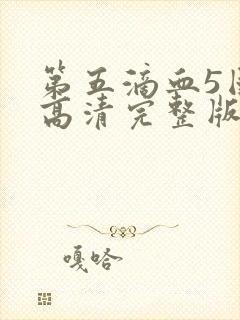 第五滴血5
高清完整版
嘎哈